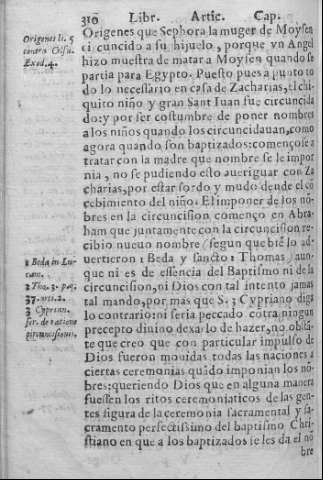 310 Libr. Artic. Cap.
Origenes li. 5
contra Celsũ.
Exod. 4.
Origenes que Sephora la muger de Moysen
ci cuncido a su hijuelo, porque vn Angel
hizo muestra de matar a Moysen quando se
partia para Egypto. Puesto pues a punto to
do lo necessario en casa de Zacharias, el chi
quito niño y gran Sant Iuan fue circuncida
do: y por ser costumbre de poner nombres
a los niños quando los circuncidauan, como
agora quando son baptizados: començose a
tratar con la madre que nombre se le impor
nia, no se pudiendo esto aueriguar con Za
charias, por estar sordo y mudo dende el cõ
cebimiento del niño. El imponer de los nõ-
bres en la circuncision començo en Abra-
ham que juntamente con la circuncision re-
cibio nueuo nombre (segun que biẽ lo ad-
uertieron 1 Beda y sancto 2 Thomas) aun-
que ni es de essencia del Baptismo ni de la
circuncision, ni Dios con tal intento jamas
tal mando, por mas que S. 3 Cypriano diga
lo contrario: ni seria peccado cõtra ningun
precepto diuino dexarlo de hazer, no obstã-
te que creo que con particular impulso de
Dios fueron mouidas todas las naciones a
ciertas ceremonias quãdo imponian los nõ-
bres: queriendo Dios que en alguna manera
fuessen los ritos ceremoniaticos de las gen-
tes figura de la ceremonia sacramental y sa-
cramento perfectissimo del baptismo Chri-
stiano en que a los baptizados se les da el nõ
bre
1 Beda in Lu-
cam.
2 Tho. 3. par.
37. art. 2.
3 Cyprian.
ser. de ratione
circuncisionis.